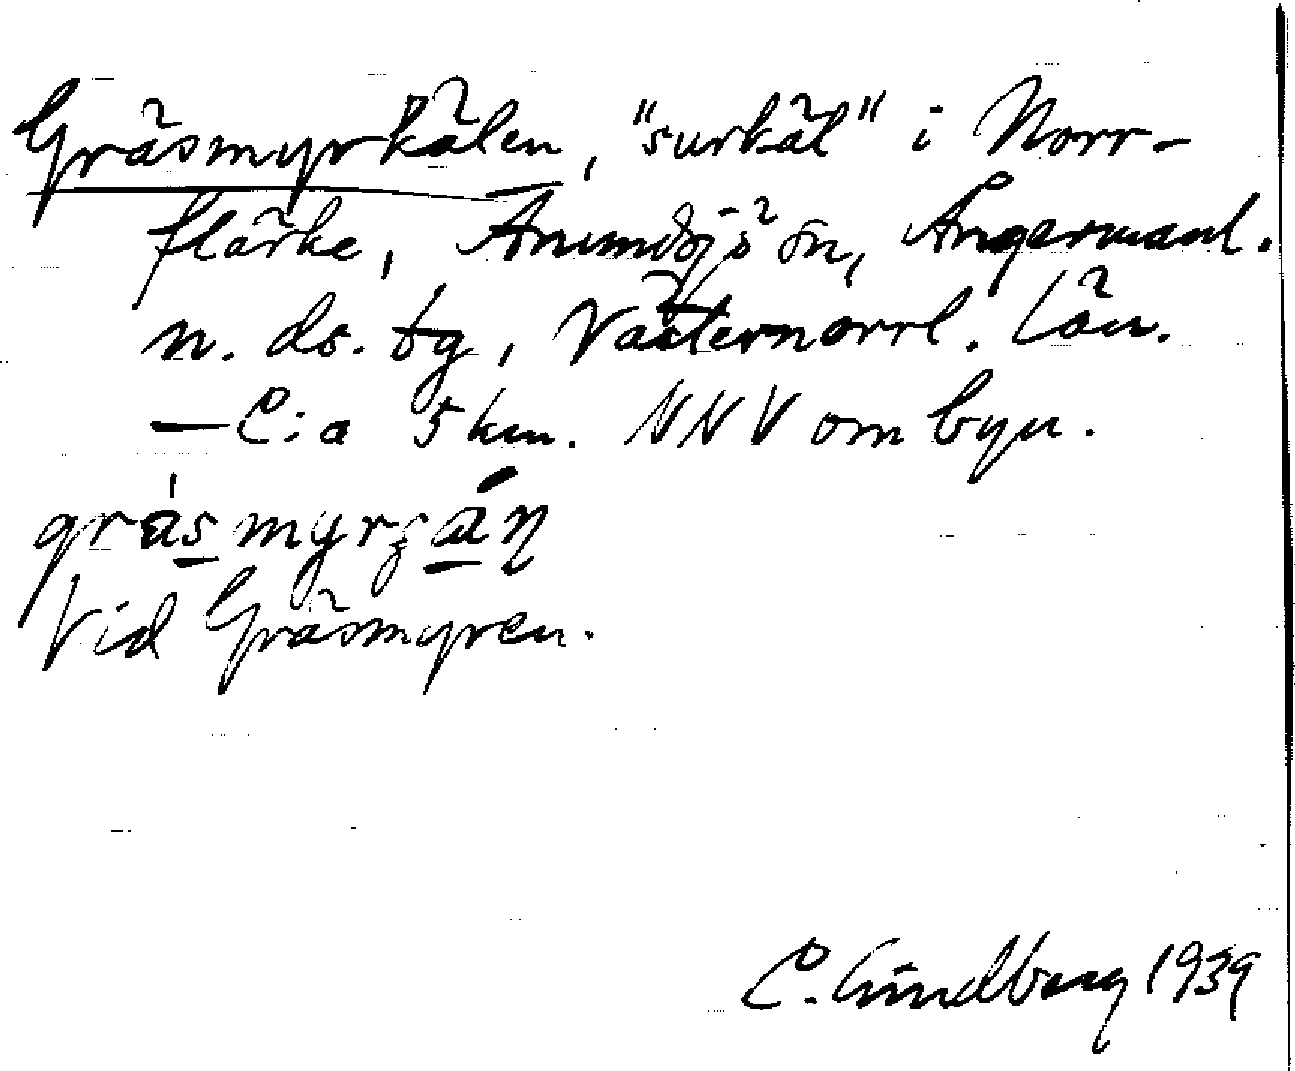 Gräsmyrkälen, "surkäl" i Norr-
flärke, Anundsjö sn, Ångermanl.
n. ds. tg, Västernorrl. län.
— C:a 5 km. NNV om byn.
Vid Gräsmyren.
C. Lindberg 1939